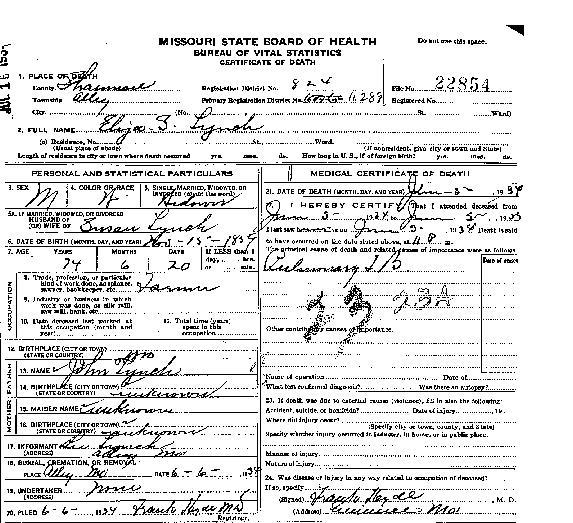 MISSOURI STATE BOARD OF HEALTH
Do not use this space.
BUREAU OF VITAL STATISTICS
CERTIFICATE OF DEATH
1. PLACE OF DEATH
County Shannon Registration District No. 824 File No. 22854
Township Alley Primary Registration District No. 6289 Registered No.
City (No. St. Ward)
2. FULL NAME Lynch
(a) Residence, No. St. Ward.
(Usual place of abode) (If nonresident, give city or town and State)
Length of residence in city or town where death occurred yrs. mos. ds. How long in U.S., if of foreign birth? yrs. mos. ds.
PERSONAL AND STATISTICAL PARTICULARS
3. SEX M 4. COLOR OR RACE W 5. SINGLE, MARRIED, WIDOWED, OR DIVORCED (write the word) Widower
5a. IF MARRIED, WIDOWED, OR DIVORCED
HUSBAND OF
(OR) WIFE OF Susan Lynch
6. DATE OF BIRTH (MONTH, DAY, AND YEAR)
7. AGE YEARS 74 MONTHS 6 DAYS 20 If LESS than 1 day, hrs. or min.
OCCUPATION
8. Trade, profession, or particular kind of work done, as spinner, sawyer, bookkeeper, etc. Farmer
9. Industry or business in which work was done, as silk mill, saw mill, bank, etc.
10. Date deceased last worked at this occupation (month and year)
11. Total time (years) spent in this occupation
12. BIRTHPLACE (CITY OR TOWN)
(STATE OR COUNTRY) Mo
13. NAME John Lynch
14. BIRTHPLACE (CITY OR TOWN)
(STATE OR COUNTRY) unknown
15. MAIDEN NAME unknown
16. BIRTHPLACE (CITY OR TOWN)
(STATE OR COUNTRY) unknown
17. INFORMANT Lynch
(ADDRESS) Alley Mo
18. BURIAL, CREMATION, OR REMOVAL
PLACE Alley Mo DATE 6-6-1934
19. UNDERTAKER none
(ADDRESS)
20. FILED 6-6-1934 Frank Hyde MD
Registrar.
MEDICAL CERTIFICATE OF DEATH
21. DATE OF DEATH (MONTH, DAY, AND YEAR) June-5-1934
I HEREBY CERTIFY, That I attended deceased from
June 5-
I last saw alive on June 5- 1934 Death is said
to have occurred on the date stated above, at m.
The principal cause of death and related causes of importance were as follows:
Date of onset
Pulmonary TB
23 23A
Other contributory causes of importance:
Name of operation Date of
What test confirmed diagnosis? Was there an autopsy?
23. If death was due to external causes (violence), fill in also the following:
Accident, suicide, or homicide? Date of injury 19
Where did injury occur?
(Specify city or town, county, and State)
Specify whether injury occurred in industry, in home, or in public place.
Manner of injury
Nature of injury
24. Was disease or injury in any way related to occupation of deceased?
If so, specify
(Signed) Frank Hyde, M. D.
(Address) Eminence - Mo